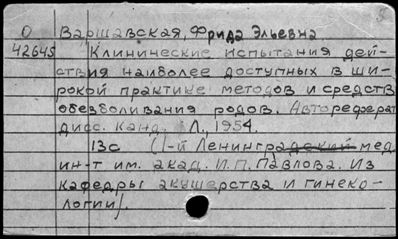 О Варшавская, Фрида Эльевна
42645 Клинические испытания дей-
ствия наиболее доступных в ши-
рокой практике методов и средств
обезболивания родов. Автореферат
дисс. канд. Л., 1954.
13с (1-й Ленинградский мед.
ин-т им. акад. И.П. Павлова. Из
кафедры акушерства и гинеко-
логии).